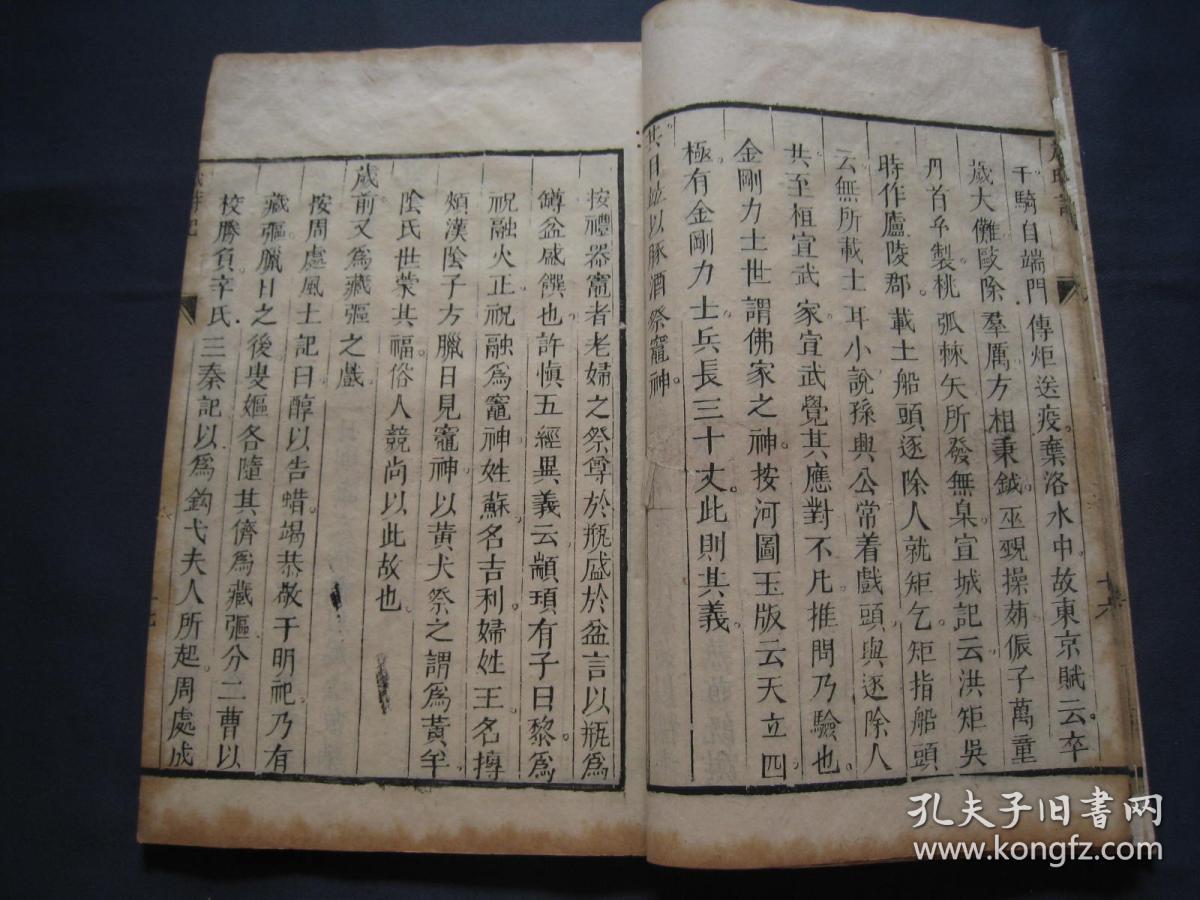 千騎自端門傳炬送疫棄洛水中故東京賦云卒
歲大儺歐除羣厲方相秉鉞巫覡操茢侲子萬童
丹首玄製桃弧棘矢所發無臬宣城記云洪矩吳
時作廬陵郡載土船頭逐除人就矩乞矩指船頭
云無所載土耳小說孫興公常着戲頭與逐除人
共至桓宣武家宣武覺其應對不凡推問乃驗也
金剛力士世謂佛家之神按河圖玉版云天立四
極有金剛力士兵長三十丈此則其義
其日並以豚酒祭竈神
按禮器竈者老婦之祭尊於瓶盛於盆言以瓶爲
罇盆盛饌也許愼五經異義云顓頊有子曰黎爲
祝融火正祝融爲竈神姓蘇名吉利婦姓王名摶
頰漢陰子方臘日見竈神以黃犬祭之謂爲黃羊
陰氏世蒙其福俗人競尚以此故也
歲前又爲藏彄之戲
按周處風土記曰醇以告蜡竭恭敬于明祀乃有
藏彄臘日之後叟嫗各隨其儕爲藏彄分二曹以
校勝負辛氏三秦記以爲鈎弋夫人所起周處成
孔夫子旧書网
www.kongfz.com